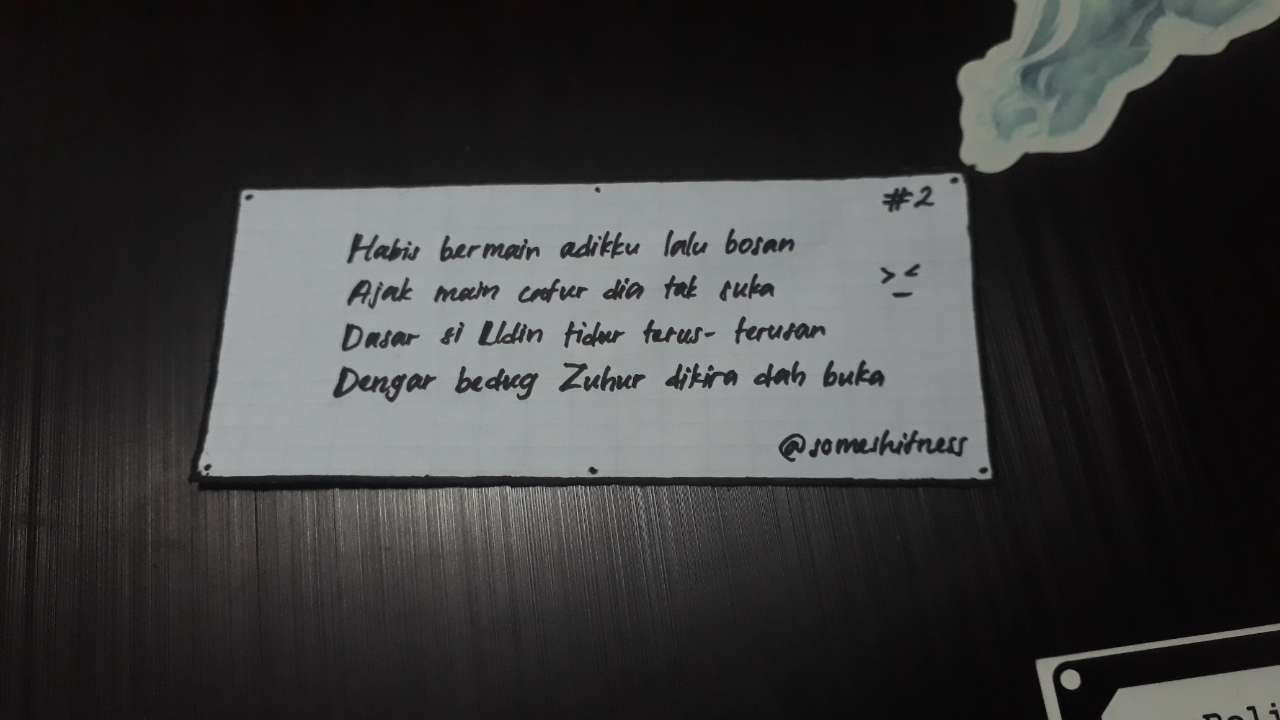 #2
Habis bermain adikku lalu bosan
Ajak main catur dia tak suka
> <
Dasar si Udin tidur terus-terusan
Dengar bedug Zuhur dikira dah buka
@someshitness